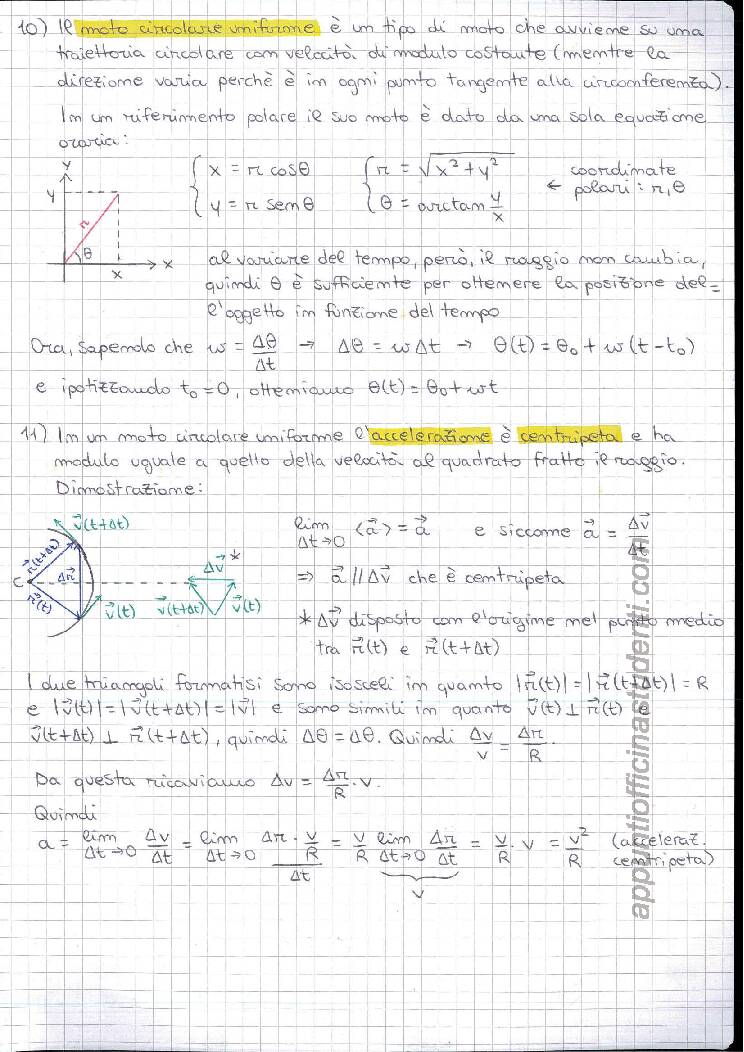 10) Il moto circolare uniforme è un tipo di moto che avviene su una
traiettoria circolare con velocità di modulo costante (mentre la
direzione varia perchè è in ogni punto tangente alla circonferenza).
In un riferimento polare il suo moto è dato da una sola equazione
oraria:
y
y
r
θ
x
x
{ x = r cosθ
y = r senθ
{ r = √(x² + y²)
θ = arctan y/x
← coordinate
polari: r, θ
al variare del tempo, però, il raggio non cambia,
quindi θ è sufficiente per ottenere la posizione del=
l'oggetto in funzione del tempo
Ora, sapendo che w = Δθ/Δt → Δθ = w Δt → θ(t) = θ₀ + w (t - t₀)
e ipotizzando t₀ = 0, otteniamo θ(t) = θ₀ + wt
11) In un moto circolare uniforme l'accelerazione è centripeta e ha
modulo uguale a quello della velocità al quadrato fratto il raggio.
Dimostrazione:
v⃗(t+Δt)
r⃗(t+Δt)
Δr⃗
C
r⃗(t)
v⃗(t)
Δv⃗ *
v⃗(t+Δt)
v⃗(t)
lim Δt→0 ⟨a⃗⟩ = a⃗ e siccome a⃗ = Δv⃗/Δt
⇒ a⃗ // Δv⃗ che è centripeta
* Δv⃗ disposto con l'origine nel punto medio
tra r⃗(t) e r⃗(t+Δt)
I due triangoli formatisi sono isosceli in quanto |r⃗(t)| = |r⃗(t+Δt)| = R
e |v⃗(t)| = |v⃗(t+Δt)| = |v⃗| e sono simili in quanto v⃗(t) ⊥ r⃗(t) e
v⃗(t+Δt) ⊥ r⃗(t+Δt), quindi Δθ = Δθ. Quindi Δv/v = Δr/R.
Da questa ricaviamo Δv = Δr/R · v.
Quindi
a = lim Δt→0 Δv/Δt = lim Δt→0 (Δr · v/R)/Δt = v/R lim Δt→0 Δr/Δt = v/R · v = v²/R (acceleraz.
centripeta)
v
appuntiofficinastudenti.com